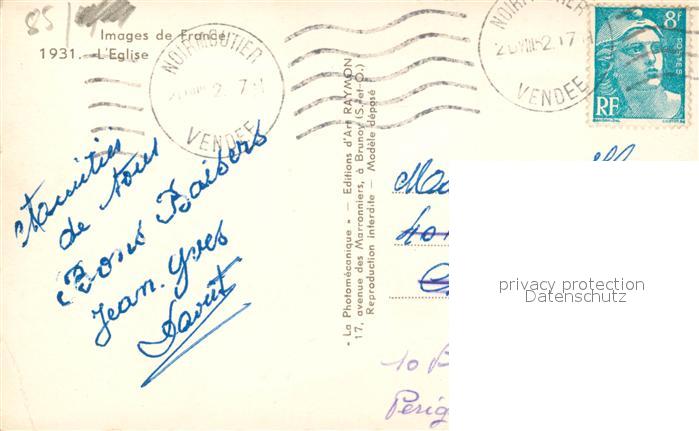 85
Images de France
1931. — L'Eglise
NOIRMOUTIER
VENDEE
NOIRMOUTIER
VENDEE
8f
POSTES
RF
Amitiés
de tous
Bons Baisers
Jean-Yves
"La Photomécanique" — Editions d'Art RAYMON
17, avenue des Marronniers, à Brunoy (S.-et-O.)
Reproduction interdite — Modèle déposé
privacy protection
Datenschutz
10
Périg